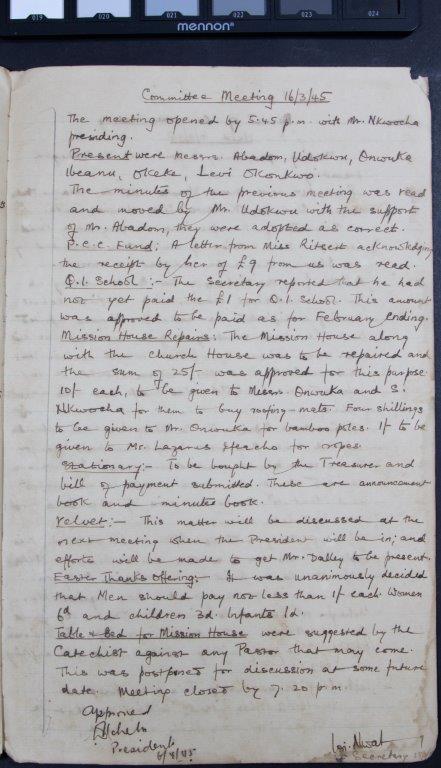 019 020 021 022 023 024
mennon
Committee Meeting 16/3/45
The meeting opened by 5.45 p.m. with Mr. Nkwocha
presiding.
Present were Messrs. Abadom, Udokwu, Onwuka
Ibeanu, Okeke, Levi Okonkwo.
The minutes of the previous meeting was read
and moved by Mr. Udokwu with the support
of Mr. Abadom, they were adopted as correct.
P.C.C. Fund: A letter from Miss Ritsert acknowledging
the receipt by her of £9 from us was read.
O.I. School :- The secretary reported that he had
not yet paid the £1 for O.I. School. This amount
was approved to be paid as for February ending.
Mission House Repairs: The Mission House along
with the church House was to be repaired and
the sum of 25/- was approved for this purpose.
10/- each, to be given to Messrs. Onwuka and S.
Nkwocha for them to buy roofing-mats. Four shillings
to be given to Mr. Onwuka for bamboo poles. 1/- to be
given to Mr. Lazarus for ropes.
Stationary:- To be bought by the Treasurer and
bill of payment submitted. These are announcement
book and minutes book.
Velvet:- This matter will be discussed at the
next meeting when the President will be in; and
efforts will be made to get Mr. Dalley to be present.
Easter Thanks Offering:- It was unanimously decided
that Men should pay not less than 1/- each. Women
6d and children 3d. Infants 1d.
Table & Bed for Mission House were suggested by the
Catechist against any Pastor that may come.
This was postponed for discussion at some future
date. Meeting closed by 7.20 p.m.
Approved
President
Secretary